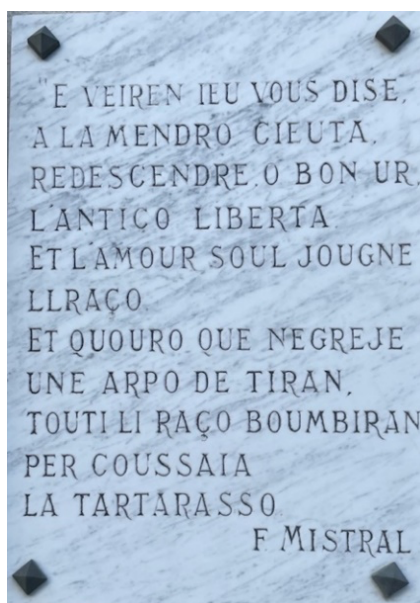 "E VEIREN IEU VOUS DISE,
A LA MENDRO CIEUTA,
REDESCENDRE, O BON UR,
L'ANTIÇO LIBERTA.
ET L'AMOUR SOUL JOUGNE
LLRAÇO.
ET QUOURO QUE NEGREJE
UNE ARPO DE TIRAN,
TOUTI LI RAÇO BOUMBIRAN
PER COUSSAIA
LA TARTARASSO
F. MISTRAL